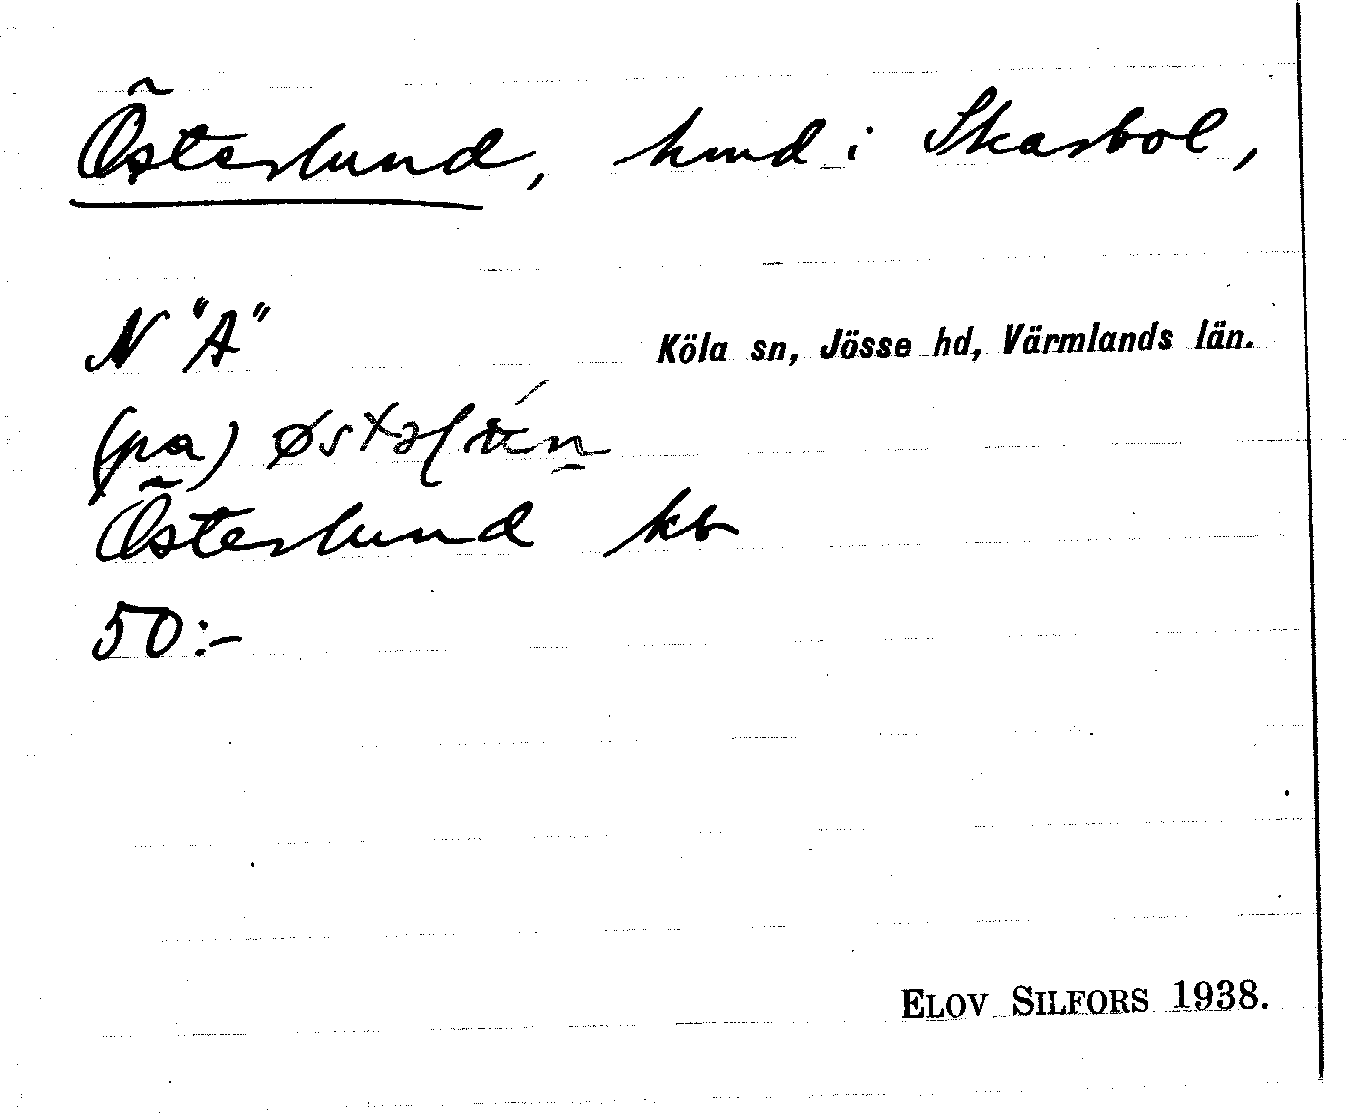 Österlund, hmd i Skarbol,
N "A"
Köla sn, Jösse hd, Värmlands län.
(pa)
Österlund kb
50:-
ELOV SILFORS 1938.